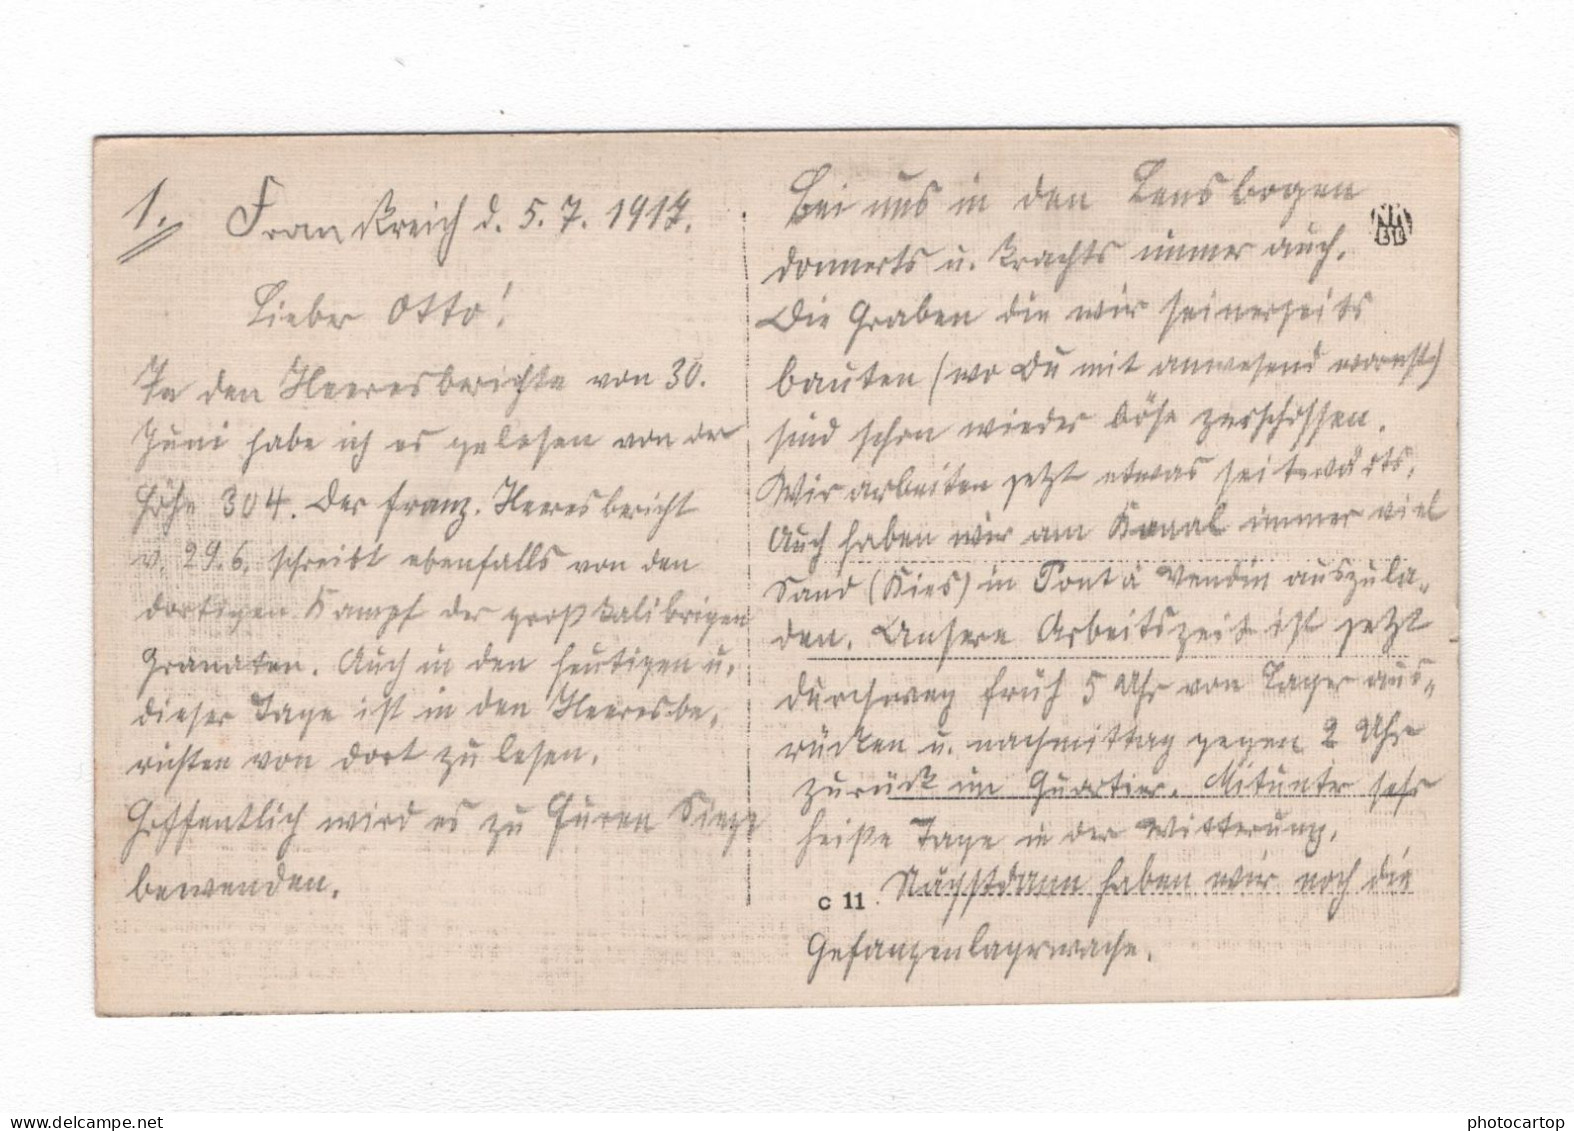 1. Frankreich d. 5.7.1917.
Lieber Otto!
In den Heeresberichte von 30.
Juni habe ich es gelesen von der
Höhe 304. Der franz. Heeresbericht
v. 29.6. schreibt ebenfalls von den
dortigen Kampf der großkalibrigen
Granaten. Auch in den heutigen u.
dieser Tage ist in den Heeresbe-
richten von dort zu lesen.
Hoffentlich wird es zu Euren Siege
bewenden.
Bei uns in den Lensbogen
donnerts u. krachts immer auch.
Die Graben die wir seinerzeits
bauten (wo Du mit anwesend warst)
sind schon wieder böse zerschossen.
Wir arbeiten jetzt etwas seitwärts.
Auch haben wir am Kanal immer viel
Sand (Kies) in Pont à Vendin auszula-
den. Unsere Arbeitszeit ist jetzt
durchweg früh 5 Uhr von Lager aus-
rücken u. nachmittag gegen 2 Uhr
zurück im Quartier. Mitunter sehr
heiße Tage in der Witterung.
C 11 Nächstdann haben wir noch die
Gefangenlagerwache.
photocartop